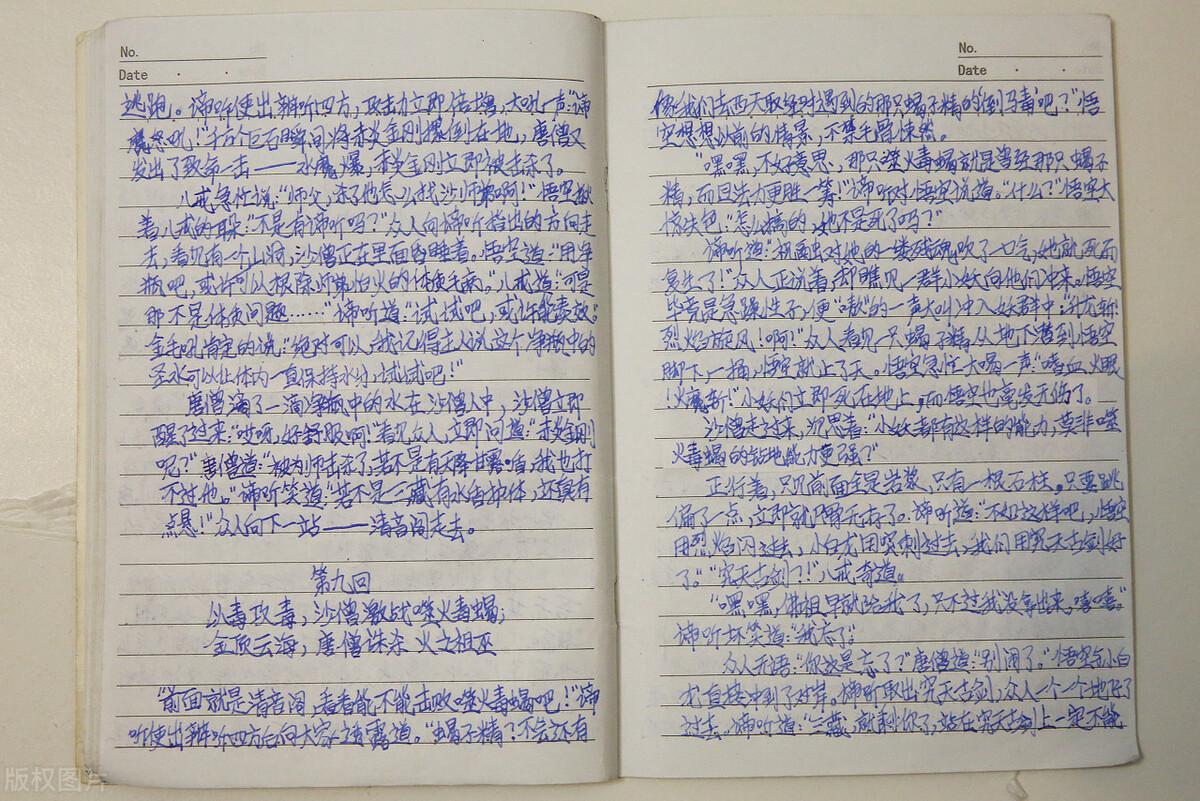 No.
Date
逃跑。谛听使出辨听四方,攻击力立即倍增,大吼一声:“谛
怒吼!”千万个巨石瞬间将赤炎金刚摞倒在地,唐僧又
发出了致命一击——水魔爆,赤炎金刚立即被击杀了。
八戒急忙说:“师父,杀了他怎么找沙师弟啊!”悟空揪
着八戒的耳朵:“不是有谛听吗?”众人向谛听指出的方向走
去,看见有一个山洞,沙僧正在里面昏睡着。悟空道:“用净
瓶吧,或许可以根除师弟怕火的体质毛病。”八戒道:“可是
那不是体质问题……”谛听道:“试试吧,或许能凑效。”
金毛吼肯定的说:“绝对可以,我记得主人说这个净瓶中的
圣水可以让体内一直保持水分,试试吧!”
唐僧滴了一滴净瓶中的水在沙僧人中,沙僧立即
醒了过来:“哎呀,好舒服啊!”看见众人,立即问道:“赤炎金刚
呢?”唐僧道:“被为师击杀了,若不是有天降甘露咱,我也打
不过他。”谛听笑道:“若不是三藏有水盾护体,还真有
点悬!”众人向下一站——清音阁走去。
第九回
以毒攻毒,沙僧激战噬火毒蝎;
金顶云海,唐僧诛杀火之祖巫
“前面就是清音阁,看看能不能击败噬火毒蝎吧!”谛
听使出辨听四方后向大家透露道。“蝎子精?不会还有
No.
Date
像我们去西天取经时遇到的那只蝎子精的‘倒马毒’吧?”悟
空想想以前的情景,不禁毛骨悚然。
“嘿嘿,不好意思,那只噬火毒蝎就是曾经那只蝎子
精,而且法力更胜一筹!”谛听对悟空说道。“什么?”悟空大
惊失色:“怎么搞的,她不是死了吗?”
谛听道:“祝融虫对他的一缕残魂吹了一口气,她就死而
复生了!”众人正说着,却瞧见一群小妖向他们冲来。悟空
毕竟是急躁性子,便“嗷”的一声大叫冲入妖群中:“升龙斩!
烈焰旋风!啊!”众人看见一只蝎子精从地下遁到悟空
脚下,一捅,悟空就上了天。悟空急忙大喝一声:“嗜血火眼
!火魔斩!”小妖们立即死在地上,而悟空也毫发无伤了。
沙僧走过来,沉思着:“小妖都有这样的能力,莫非噬
火毒蝎的钻地能力更强?”
正行着,只见前面全是岩浆,只有一根石柱。只要跳
偏了一点,立即就尸骨无存了。谛听道:“不如这样吧,悟空
用烈焰闪过去,小白龙用突刺过去,我们用究天古剑好
了。”“究天古剑?!”八戒奇道。
“嘿嘿,佛祖早就给我了,只不过我没拿出来,嘻嘻。”
谛听坏笑道:“我忘了。”
众人无语:“你这是忘了?”唐僧道:“别闹了。”悟空与小白
龙直接冲到了对岸。谛听取出究天古剑,众人一个一个地
过去。谛听道:“三藏,就剩你了,站在究天古剑上一定不能
版权图片